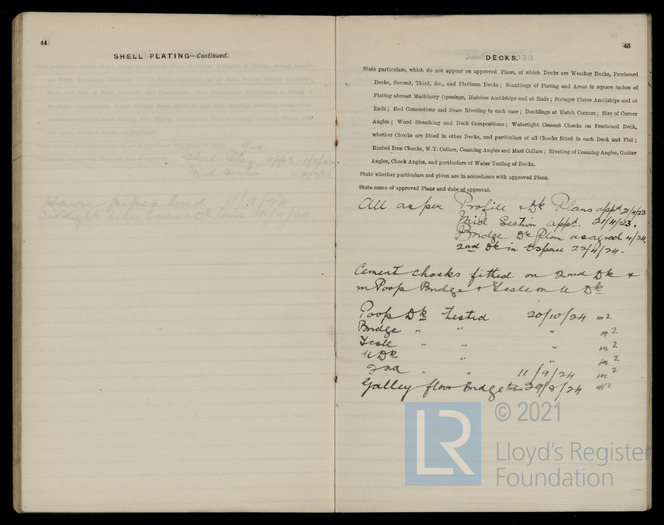 44
SHELL PLATING—Continued.
Hawse pipes tested 11/9/24
45
DECKS.
State particulars, which do not appear on approved Plans, of which Decks are Weather Decks, Freeboard
Decks, Second, Third, &c., and Platform Decks; Scantlings of Plating and Areas in square inches of
Plating abreast Machinery Openings, Hatches Amidships and at Ends; Stringer Plates Amidships and at
Ends; End Connections and Seam Riveting in each case; Doublings at Hatch Corners; Size of Corner
Angles; Wood Sheathing and Deck Compositions; Watertight Cement Chocks on Freeboard Deck,
whether Chocks are fitted in other Decks, and particulars of all Chocks fitted in each Deck and Flat;
Rusted Iron Chocks, W.T. Collars, Coaming Angles and Mast Collars; Riveting of Coaming Angles, Gutter
Angles, Chock Angles, and particulars of Water Testing of Decks.
State whether particulars not given are in accordance with approved Plans.
State name of approved Plans and date of approval.
All as per Profile & Dk Plans appd 21/4/23
Mid. Section appd. 21/4/23.
Bridge Dk Plan as agreed 4/24.
2nd Dk in Xspace 22/4/24.
Cement chocks fitted on 2nd Dk &
in Poop Bridge & Fcsle on U Dk
Poop Dk tested 20/10/24 m2
Bridge " " " m2
Fcsle " " m2
U Dk " " m2
2nd " " 11/9/24 m2
Galley floor Bridge 29/8/24 m2
LR
© 2021
Lloyd's Register
Foundation